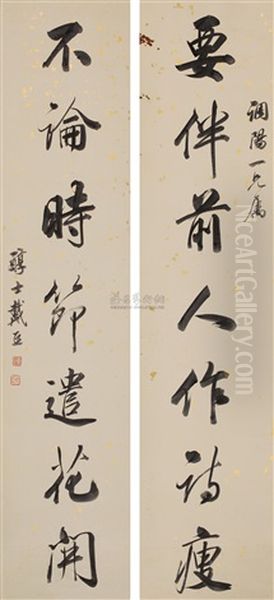 調陽一兄属
要伴前人作詩瘦
不論時節遣花開
醇士戴熙
NiceArtGallery.com